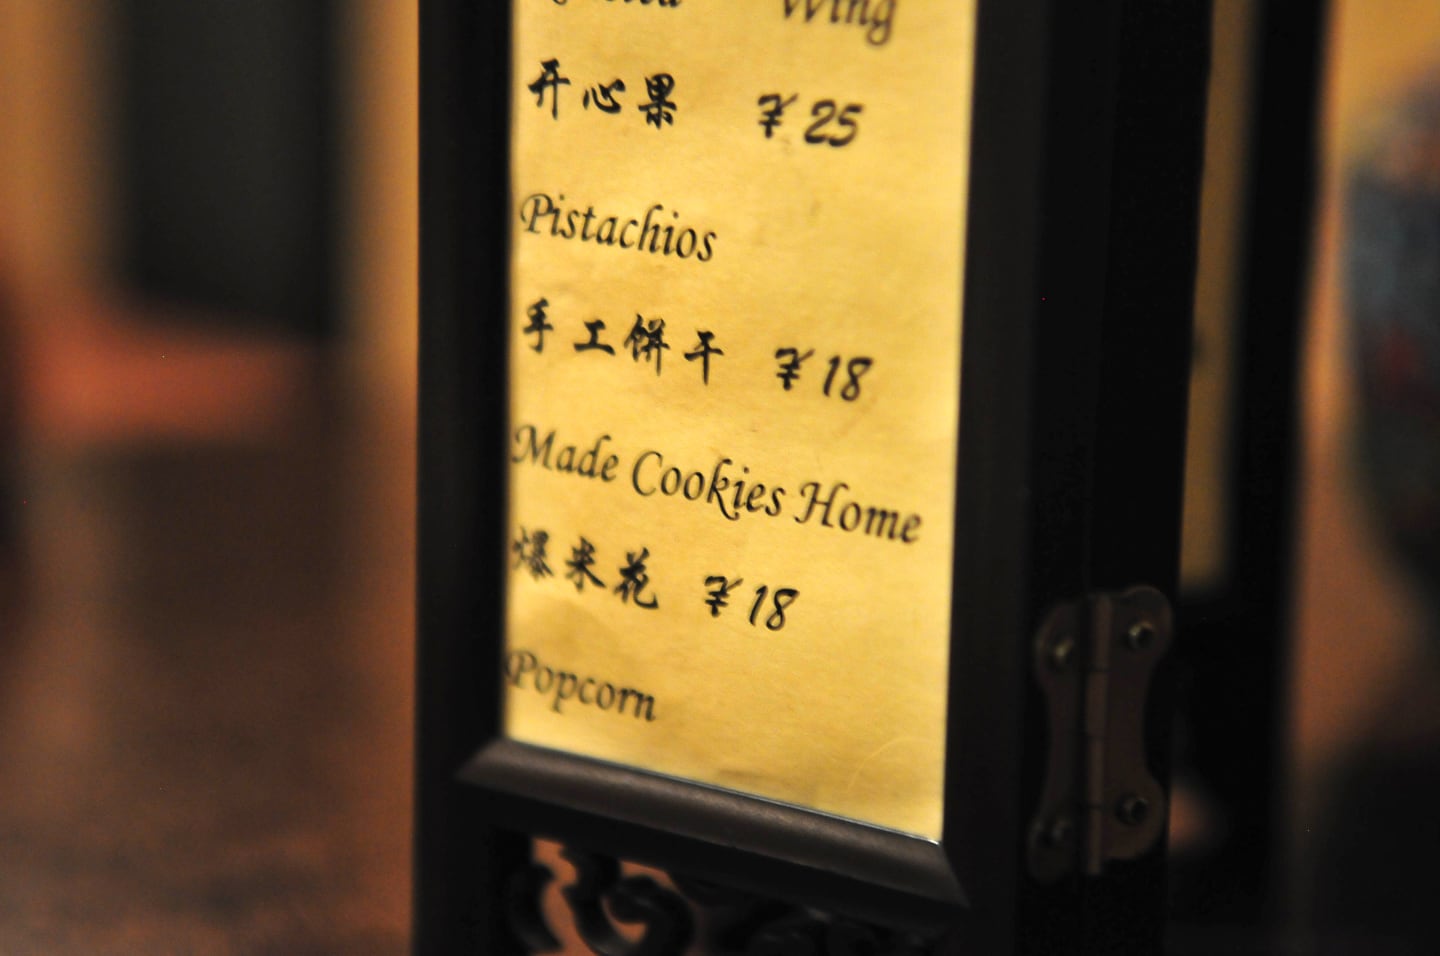 Wing
开心果 ¥25
Pistachios
手工饼干 ¥18
Made Cookies Home
爆米花 ¥18
Popcorn